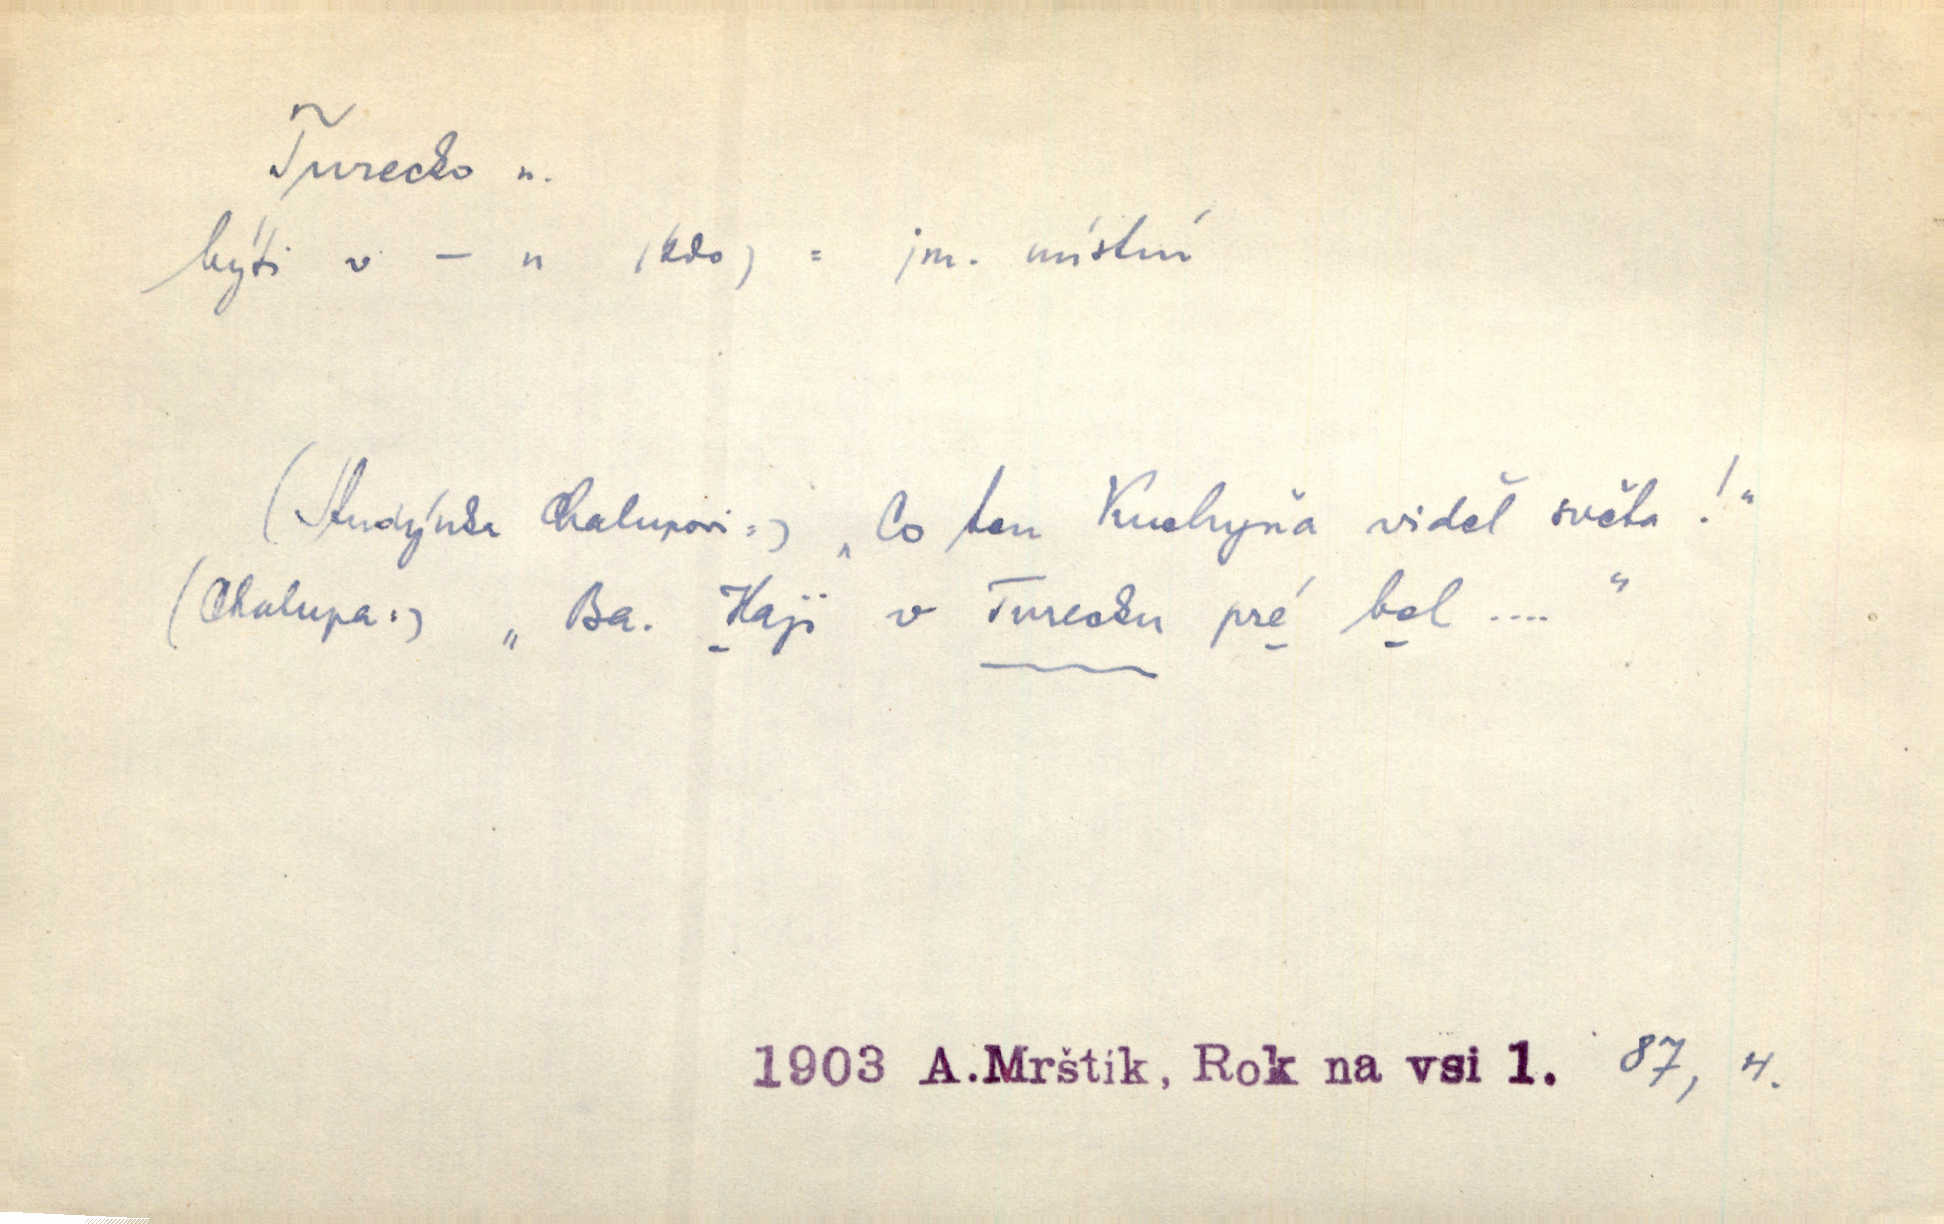 Turecko n.
býti v – u (kdo) = jm. místní
(Studýnka Chalupovi:) „Co ten Kuchyňa viděl světa!“
(Chalupa:) „Ba. Haji v Turecku pré bel ....“
1903 A.Mrštík, Rok na vsi 1. 87, 4.